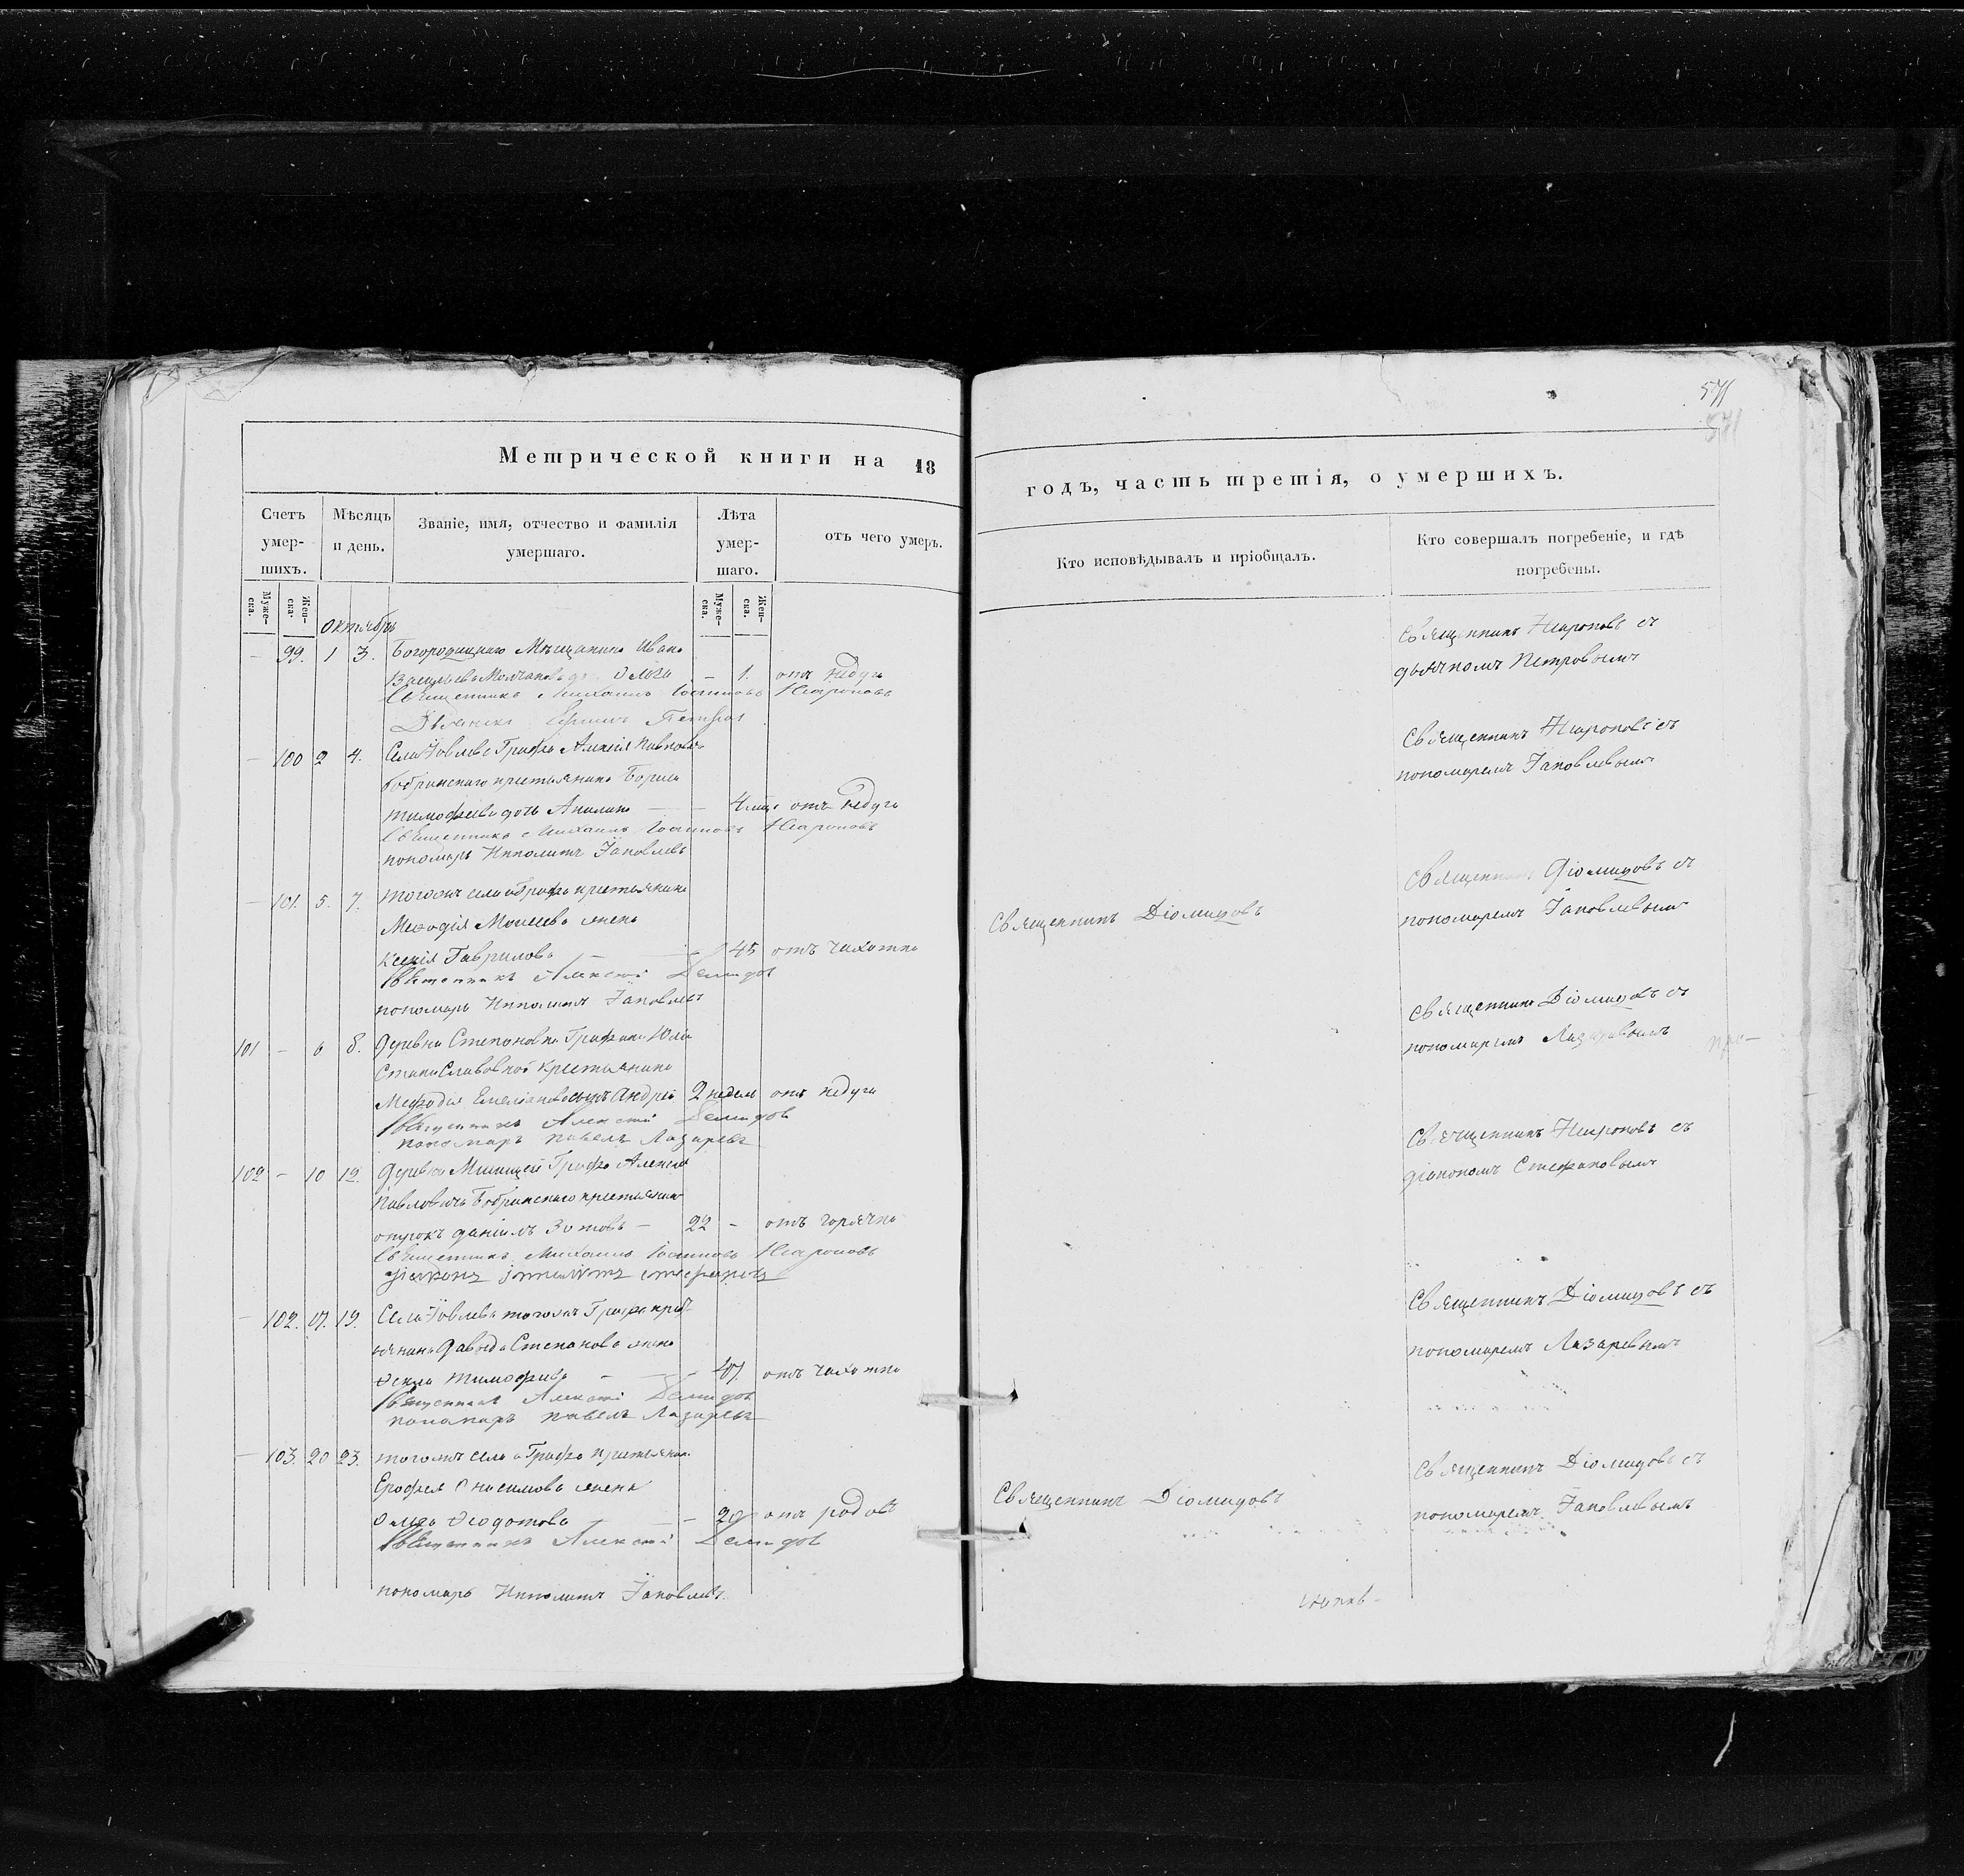 571
571
Метрической книги на 18
годъ, часть третія, о умершихъ.
Счетъ умер-шихъ.
Мѣсяцъ и день.
Званіе, имя, отчество и фамилія умершаго.
Лѣта умер-шаго.
отъ чего умеръ.
Кто исповѣдывалъ и пріобщалъ.
Кто совершалъ погребеніе, и гдѣ погребены.
Муже-ска. Жен-ска. Муже-ска. Жен-ска.
Октябрь
— 99. 1 3. Богородицкаго Мѣщанина Ивана
Васильева Молчанова Ольга — 1. отъ недуга
Священникъ Михаилъ Іоанновъ
Дьячекъ Ефимъ Петров
Священникъ съ
дьячкомъ Петровымъ
— 100 2 4. Села Іовлева Графа Алексѣя Павлова
Бобринскаго крестьянина Бориса
Тимофеева дочь Акилина — — 4 отъ недуга
Священникъ Михаилъ Іоанновъ
пономарь Ипполитъ Іаковлевъ
Священникъ съ
пономаремъ Іаковлевымъ
— 101. 5. 7. тогожъ села и Графа крестьянина
Меѳодія Моисеева жена
Ксенія Гаврилова — — 45 отъ чахотки
Священникъ Алексѣй Демидов
пономарь Ипполитъ Іаковлевъ
Священникъ Діомидовъ
Священникъ Діомидовъ съ
пономаремъ Іаковлевымъ
101 — 6 8. Деревни Степановки Графини Юліи
Станиславовной крестьянина
Мефодія Емеліянова сынъ Андрей 2 недели отъ недуга
Священникъ Алексѣй Демидов
пономарь павелъ Лазаревъ
Священникъ Діомидовъ съ
пономаремъ Лазаревымъ
102 — 10 12. Деревни Графа Алексея
Павловича Бобринскаго крестьянинъ
отрокъ Даніилъ Зотовъ — 22 — отъ горячки
Священникъ Михаилъ Іоанновъ
діаконъ стефановъ
Священникъ съ
діакономъ Стефановымъ
— 102. 17. 19. Села Іовлева тогожъ Графа крест-
янина Давыда Степанова жена
Ѳекла Тимофеева — — 47 отъ чахотки
Священникъ Алексѣй Демидов
пономарь павелъ Лазаревъ
Священникъ Діомидовъ съ
пономаремъ Лазаревымъ
— 103. 20 23. тогожъ села и Графа крестьянина
Ерофея Онисимова жена
Ольга Ѳедотова — — 20 отъ родовъ
Священникъ Алексѣй Демидов
пономарь Ипполитъ Іаковлевъ.
Священникъ Діомидовъ
Священникъ Діомидовъ съ
пономаремъ Іаковлевымъ